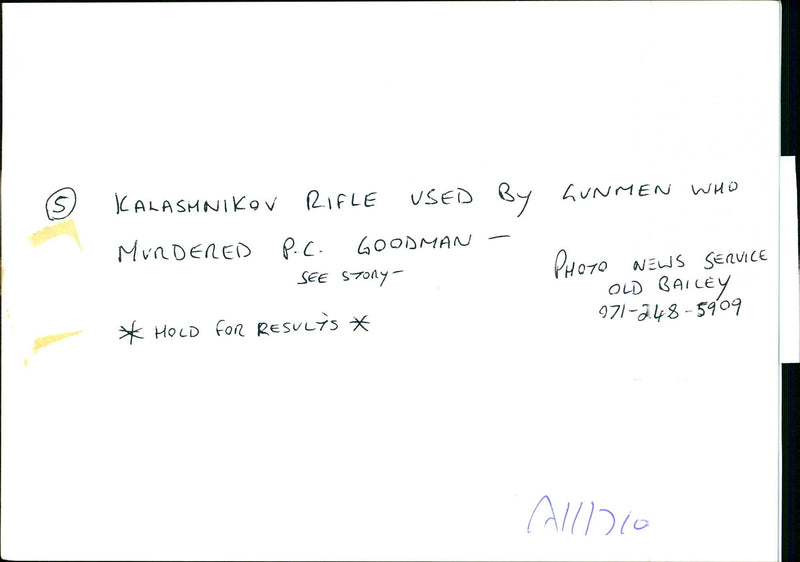 5 KALASHNIKOV RIFLE USED BY GUNMEN WHO
MURDERED P.C. GOODMAN –
SEE STORY –
* HOLD FOR RESULTS *
PHOTO NEWS SERVICE
OLD BAILEY
071-248-5909